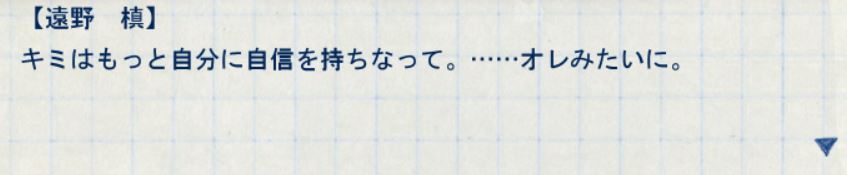 【遠野　槙】
キミはもっと自分に自信を持ちなって。……オレみたいに。